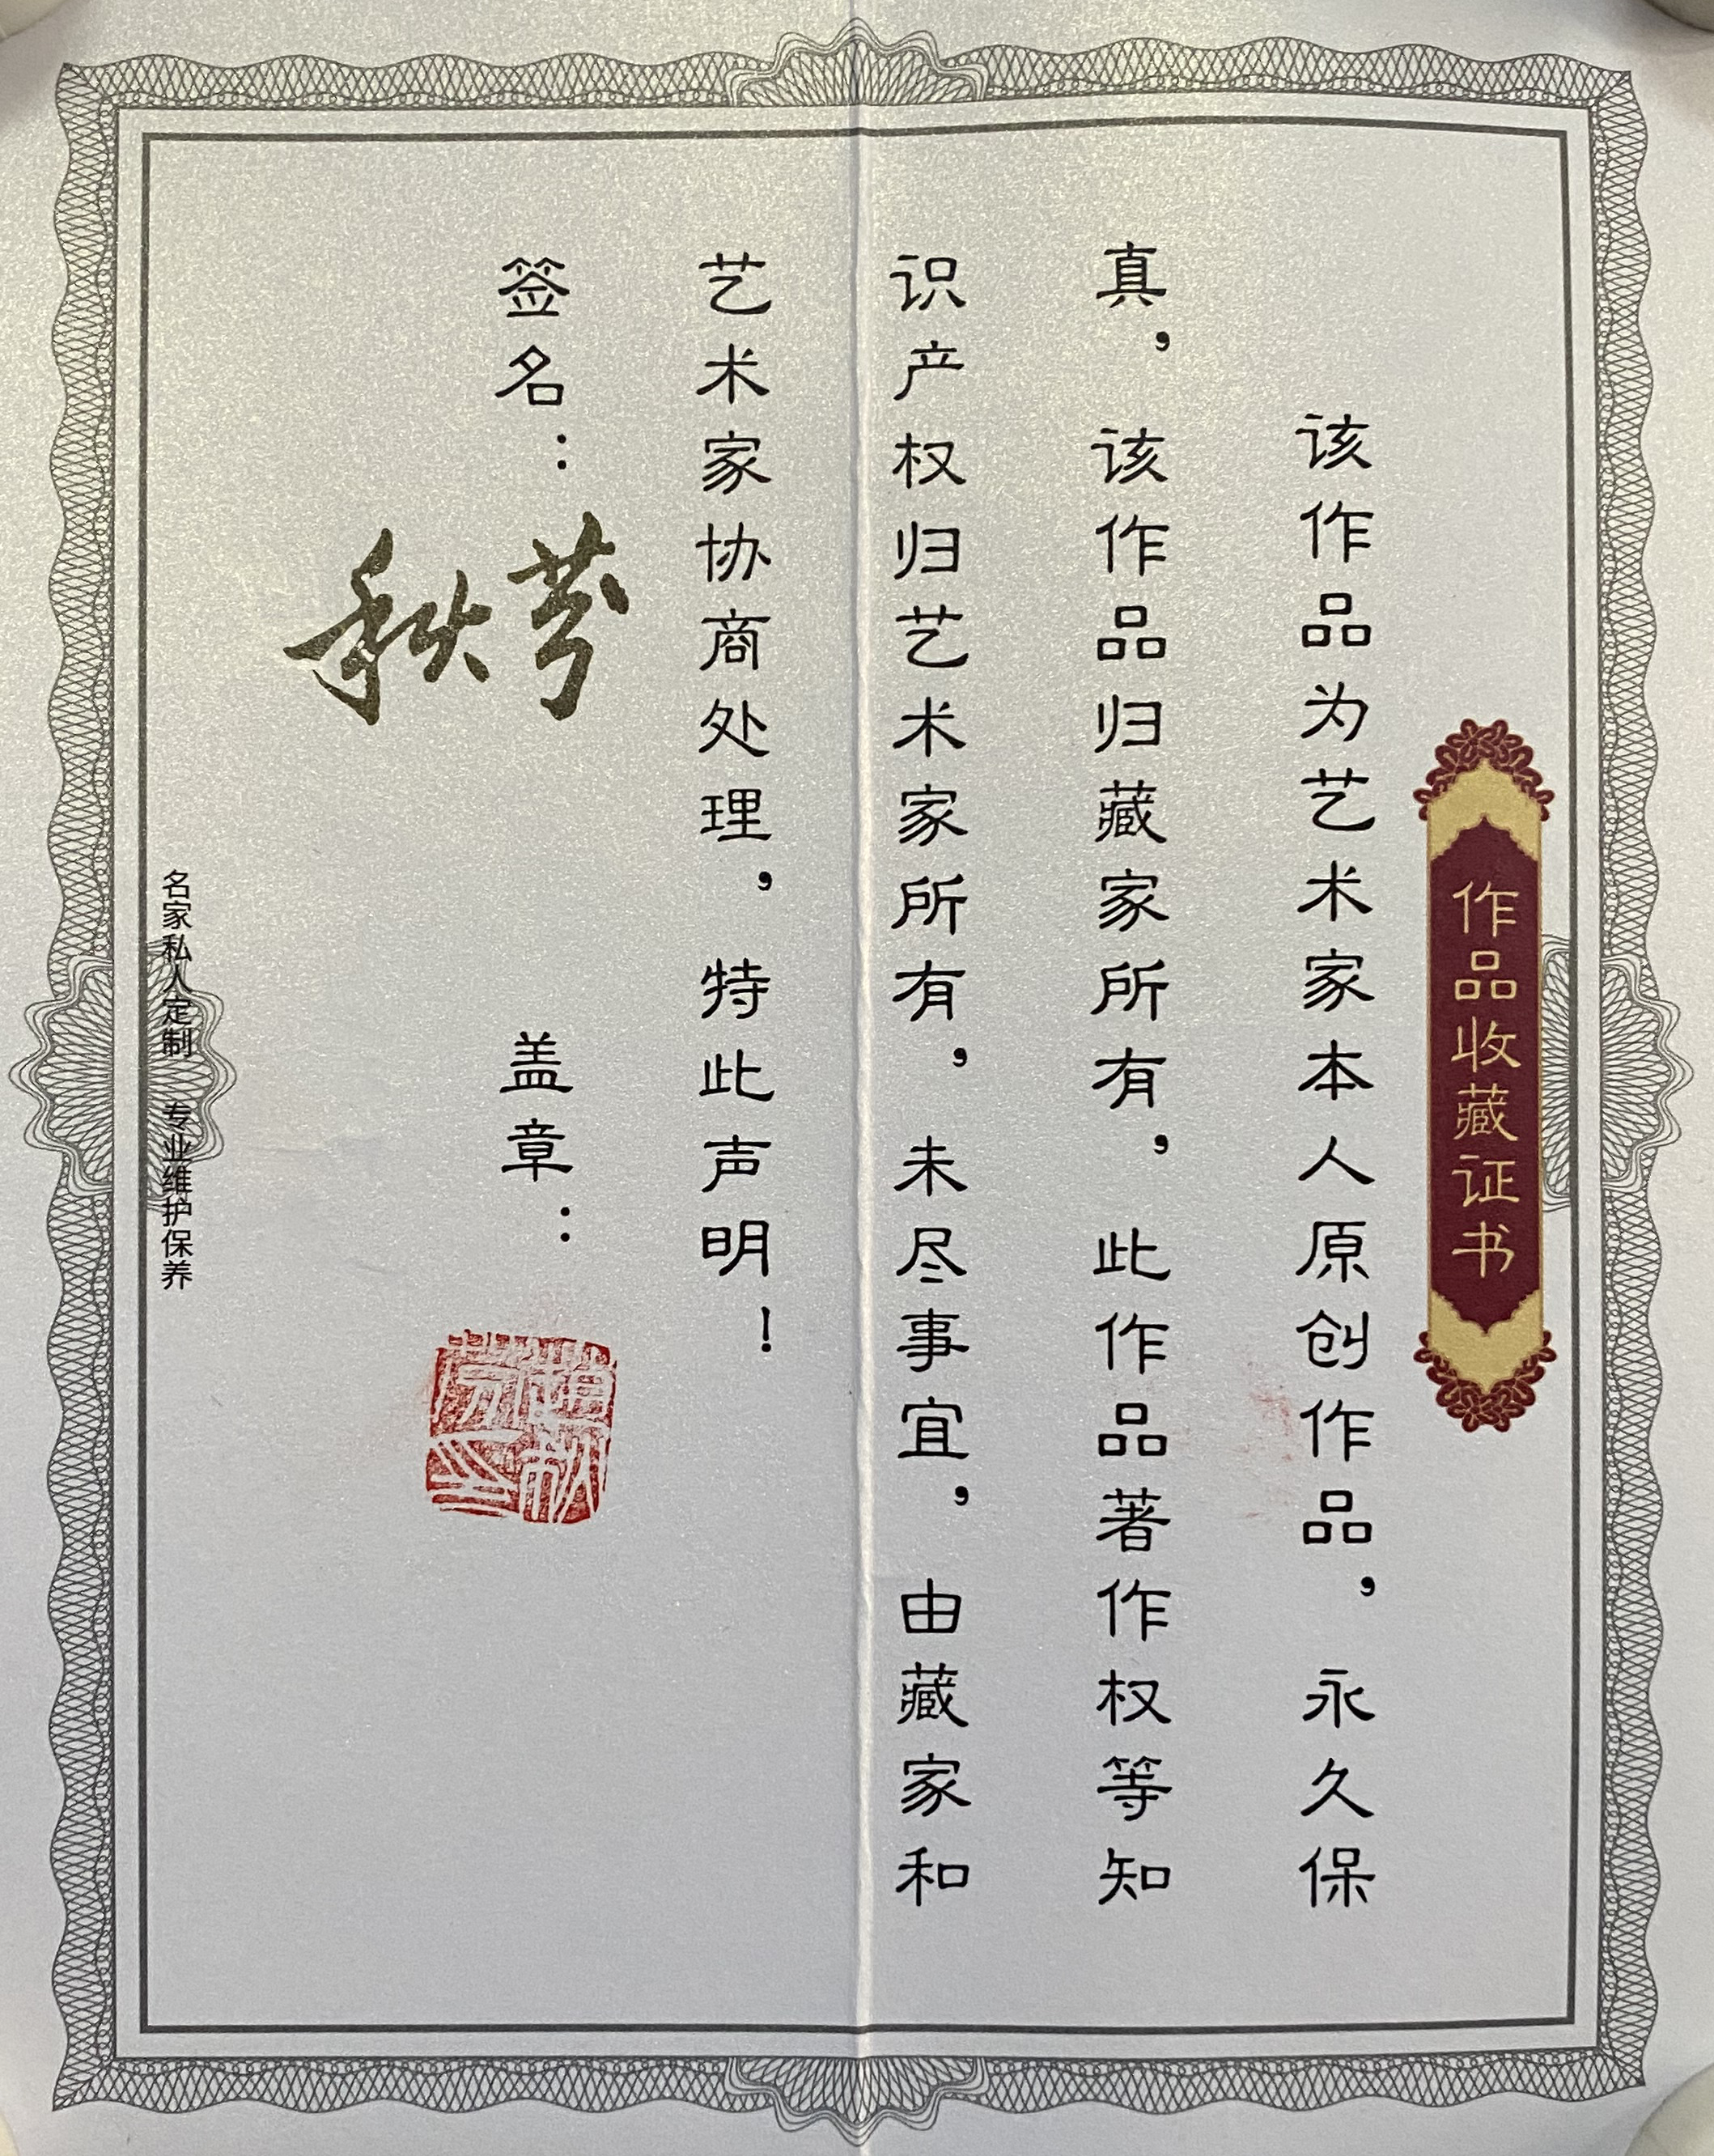 作品收藏证书
该作品为艺术家本人原创作品，永久保
真，该作品归藏家所有，此作品著作权等知
识产权归艺术家所有，未尽事宜，由藏家和
艺术家协商处理，特此声明！
签名：
秋芬
盖章：
名家私人定制 专业维护保养